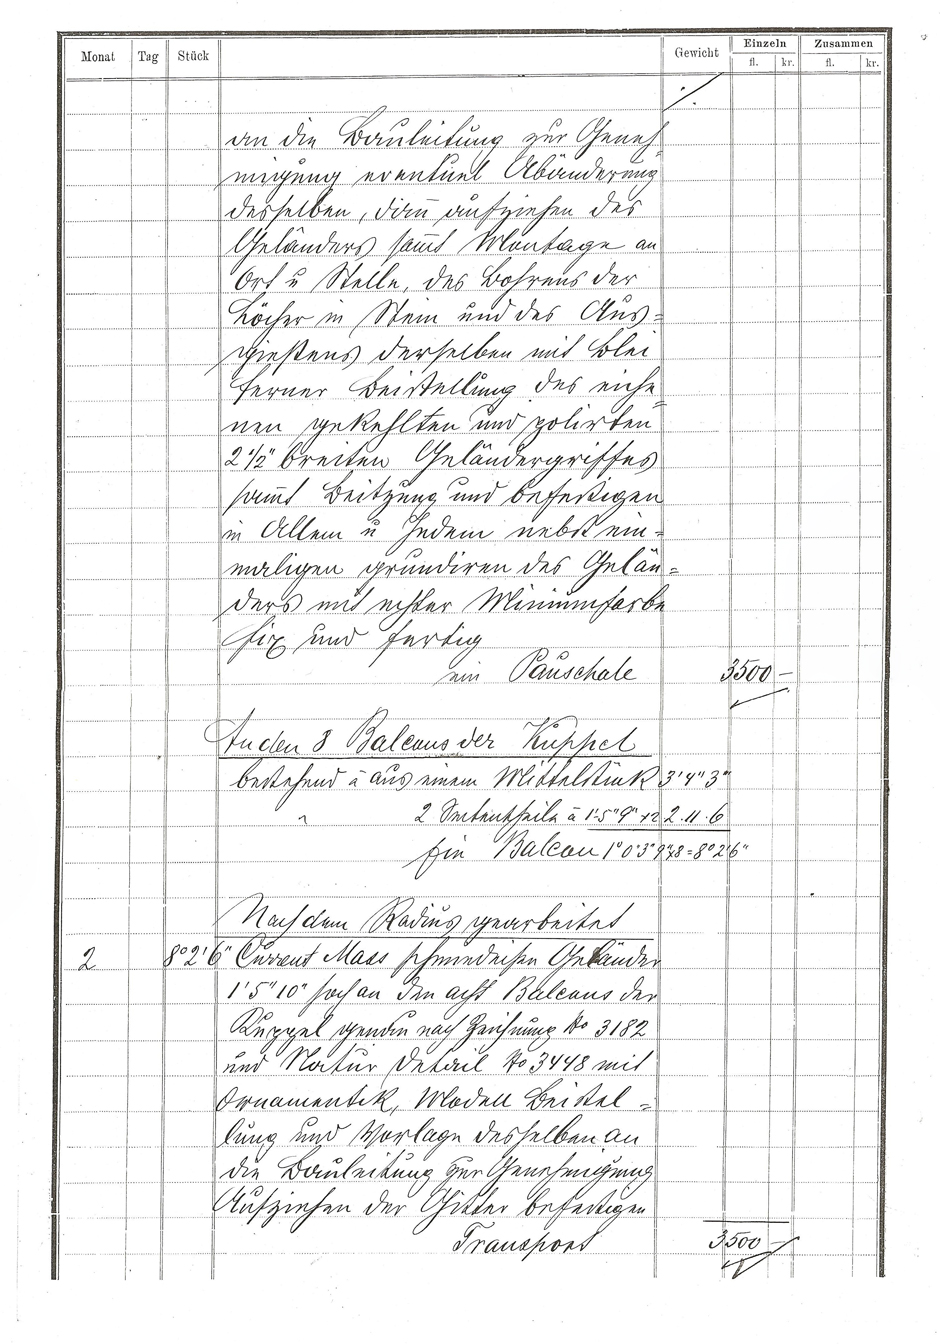 Monat Tag Stück Gewicht Einzeln Zusammen
fl. kr. fl. kr.
·/.
an die Bauleitung zur Geneh=
migung eventuel Abänderung
desselben, dann aufziehen des
Geländers sammt Montage an
Ort u Stelle, des Bohrens der
Löcher in Stein und des Aus=
gießens derselben mit Blei
ferner Beistellung des eiche=
nen gekehlten und polirten
2 1/2" breiten Geländergriffes
sammt Beitzung und befestigen
in Allem u Jedem nebst ein=
maligen grundiren des Gelän=
ders mit echter Miniumfarbe
fix und fertig
ein Pauschale 3500 —
An den 8 Balcons der Kuppel
bestehend à aus einem Mittelstück 3' 4" 3'"
" 2 Seitentheile à 1' 5" 9'" x 2 2. 11. 6
Ein Balcon 1° 0' 3" 9'" x 8 = 8° 2' 6"
Nach dem Radius gearbeitet
2 8° 2' 6" Current Mass schmiedeisen Geländer
1' 5" 10'" hoch an den acht Balcons der
Kuppel genau nach Zeichnung No 3182
und Natur Detail No 3448 mit
Ornamentik, Modell Beistel=
lung und Vorlage desselben an
die Bauleitung zur Genehmigung
Aufziehen der Gitter befestigen
Transport 3500 —